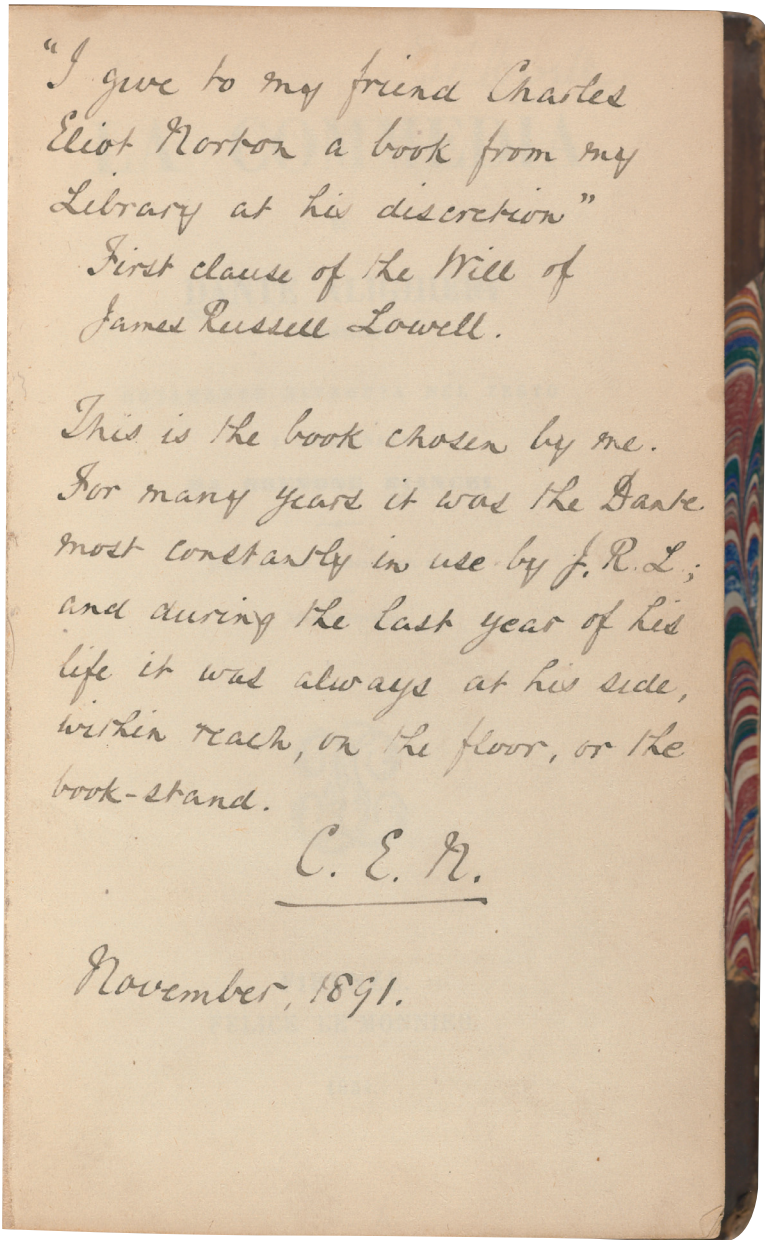 "I give to my friend Charles
Eliot Norton a book from my
Library at his discretion"
First clause of the Will of
James Russell Lowell.
This is the book chosen by me.
For many years it was the Dante
most constantly in use by J. R. L.;
and during the last year of his
life it was always at his side,
within reach, on the floor, or the
book-stand.
C. E. N.
November, 1891.